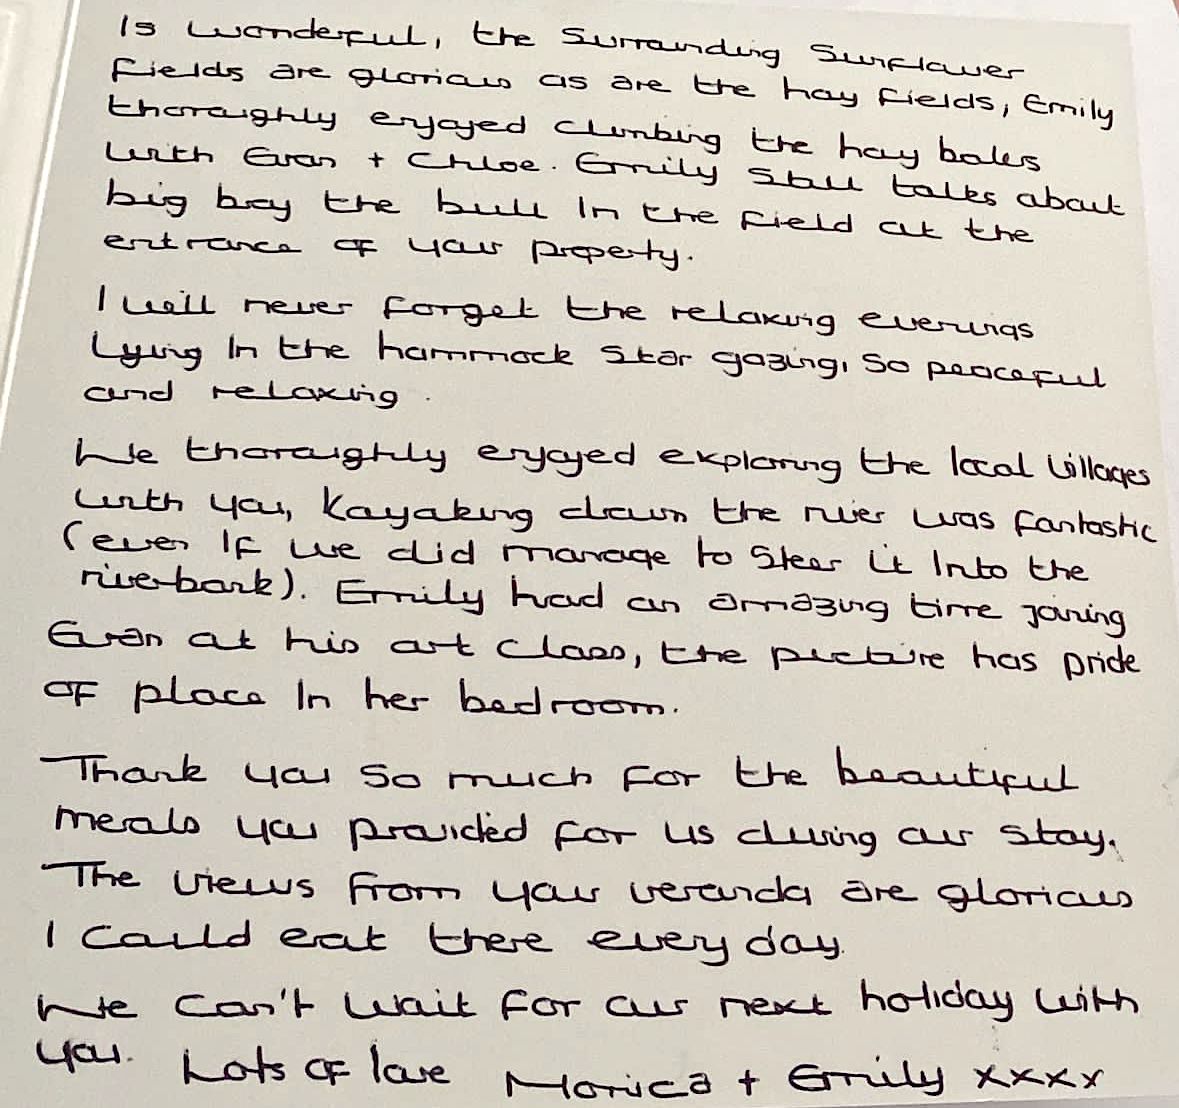 Is wonderful, the surrounding sunflower
fields are glorious as are the hay fields, Emily
thoroughly enjoyed climbing the hay bales
with Evan + Chloe. Emily still talks about
big boy the bull in the field at the
entrance of your property.
I will never forget the relaxing evenings
Lying in the hammock star gazing, so peaceful
and relaxing.
We thoroughly enjoyed exploring the local villages
with you, Kayaking down the river was fantastic
(even if we did manage to steer it into the
riverbank). Emily had an amazing time joining
Evan at his art class, the picture has pride
of place in her bedroom.
Thank you so much for the beautiful
meals you provided for us during our stay.
The views from your veranda are glorious
I could eat there every day.
We can't wait for our next holiday with
you. Lots of love Monica + Emily xxxx